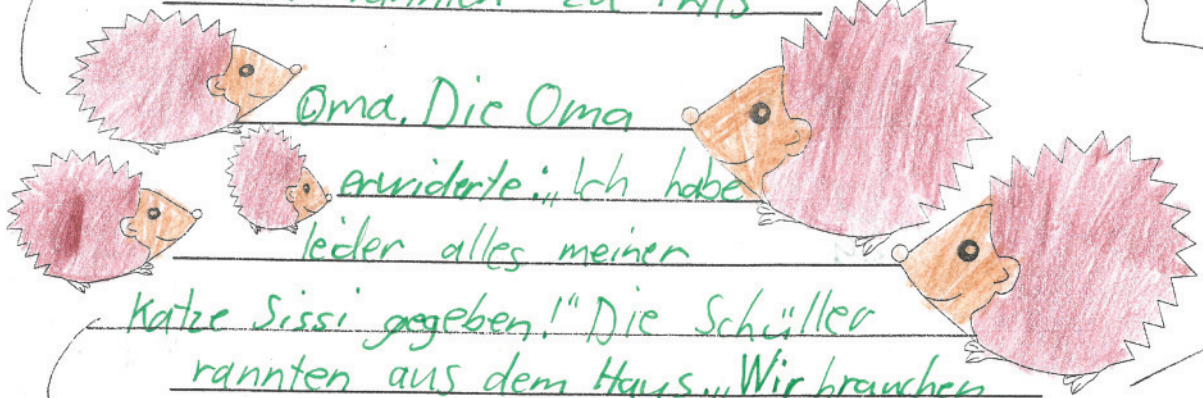 rannten zu
Oma. Die Oma
erwiderte: „Ich habe
leider alles meiner
Katze Sissi gegeben!“ Die Schüller
rannten aus dem Haus. „Wir brauchen